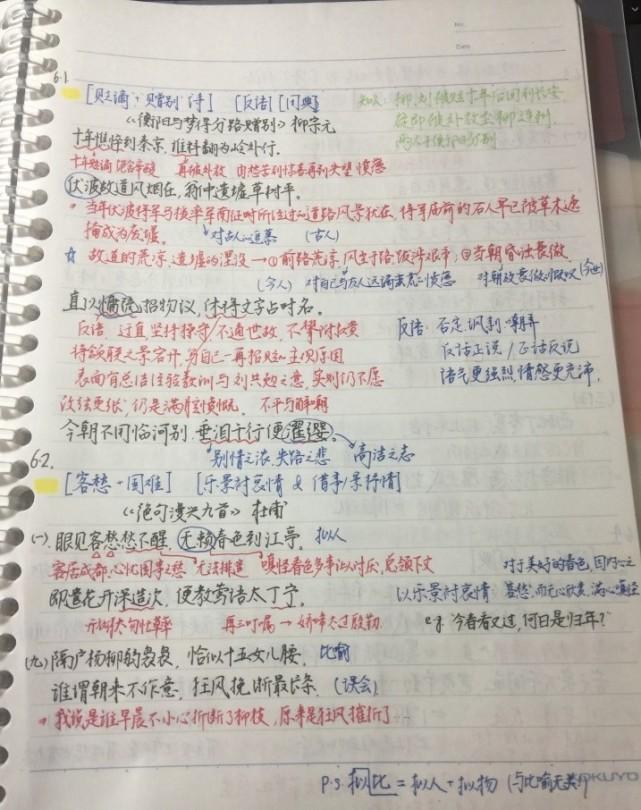 No.
Date
6.1
[贬谪·赠别 诗] [反语] [用典]
知人：柳、刘被贬十年后回到长安,
《衡阳与梦得分路赠别》 柳宗元
旋即被外放至柳、连州,
两人于衡阳分别
十年憔悴到秦京, 谁料翻为岭外行.
十年贬谪 饱含辛酸 再被外放 由愁苦到惊喜再到失望 愤慨
伏波故道风烟在, 翁仲遗墟草树平.
• 当年伏波将军马援率军南征时所经过的道路风景犹在, 将军庙前的石人早已被草木遮
掩成为废墟. 对古人的追慕 (古人)
☆ 故道的荒凉、遗墟的湮没 → ① 前路荒凉, 风尘仆仆 跋涉艰辛; ② 当朝昏法衰微.
(今人) 对自己与友人远谪蛮荒的愤慨 对朝政衰微的慨叹 (今世)
直以慵疏招物议, 休将文字占时名.
反语 过直 坚持操守 / 不通世故, 不攀附权贵
反语: 否定、讽刺、嘲弄
将颔联之景宕开, 写自己一再招贬的主观原因
反话正说 / 正话反说
表面有总结经验教训与刘共勉之意, 实则仍不愿
语气更强烈, 情感更充沛.
改弦更张, 仍是满腔愤慨. 不平与自嘲
今朝不用临河别, 垂泪千行便濯缨.
别情之浓、失路之悲 高洁之志
6.2.
[客愁 + 国难] [乐景衬哀情 & 借事/景抒情]
《绝句漫兴九首》 杜甫
(一). 眼见客愁愁不醒, 无赖春色到江亭. 拟人
客居成都, 心忧国事之愁 无法排遣 嗔怪春色多事的讨厌, 总领下文
对于美好的春色, 因内心之
即遣花开深造次, 便教莺语太丁宁.
以乐景衬哀情 客愁, 而无心欣赏, 满心嗔怪
开得太匆忙草率 再三叮嘱 → 娇啼太过殷勤
e.g. "今春看又过, 何日是归年?"
(九) 隔户杨柳弱袅袅, 恰似十五女儿腰. 比喻
谁谓朝来不作意, 狂风挽断最长条. (误会)
• 我说是谁早晨不小心折断了柳枝, 原来是狂风摧折了…
P.S. 拟比 = 拟人 + 拟物 (与比喻无关!)
KOKUYO